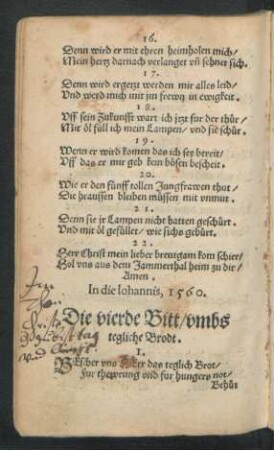 16.
Denn wird er mit ehren heimholen mich/
Mein hertz darnach verlanget vñ sehnet sich.
17.
Denn wird ergetzt werden mir alles leid/
Vnd werd mich mit jm frewẽ in ewigkeit.
18.
Vff sein Zukunfft wart ich jtzt fur der thür/
Mit öl füll ich mein Lampen/ vnd sie schür.
19.
Wenn er wird komen das ich sey bereit/
Vff das er mir geb kein bösen bescheit.
20.
Wie er den fünff tollen Jungfrawen thut/
Die draussen bleiben müssen mit vnmut.
21.
Denn sie jr Lampen nicht hatten geschürt.
Vnd mit öl gefüllet/ wie sichs gebürt.
22.
Herr Christ mein lieber breutgam kom schier/
Hol vns aus dem Jammerthal heim zu dir/
Amen.
In die Iohannis, 1560.
Die vierde Bitt/ vmbs
tegliche Brodt.
1.
Bescher vns HErr das teglich Brot/
Fur thewrung vnd fur hungers not/
Behüt